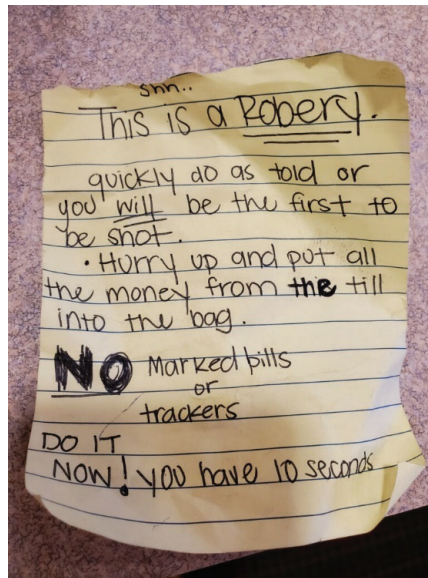 shh..
This is a Robery.
quickly do as told or
you will be the first to
be shot.
• Hurry up and put all
the money from the till
into the bag.
NO Marked bills
or
trackers
DO IT
NOW! you have 10 seconds